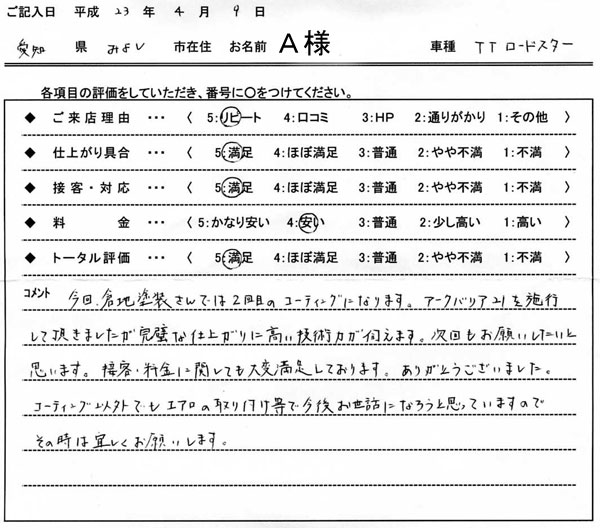 ご記入日 平成 23 年 4 月 9 日
愛知 県 みよし 市在住 お名前 A様 車種 TTロードスター
各項目の評価をしていただき、番号に○をつけてください。
◆ ご来店理由 ・・・ 〈 5:リピート 4:口コミ 3:HP 2:通りがかり 1:その他 〉
◆ 仕上がり具合 ・・・ 〈 5:満足 4:ほぼ満足 3:普通 2:やや不満 1:不満 〉
◆ 接客・対応 ・・・ 〈 5:満足 4:ほぼ満足 3:普通 2:やや不満 1:不満 〉
◆ 料金 ・・・ 〈 5:かなり安い 4:安い 3:普通 2:少し高い 1:高い 〉
◆ トータル評価 ・・・ 〈 5:満足 4:ほぼ満足 3:普通 2:やや不満 1:不満 〉
コメント 今回、倉地塗装さんでは2回目のコーティングになります。アークバリア21を施行
して頂きましたが完璧な仕上がりに高い技術力が伺えます。次回もお願いしたいと
思います。接客・料金に関しても大変満足しております。ありがとうございました。
コーティング以外でもエアロの取り付け等で今後お世話になろうと思っていますので
その時は宜しくお願いします。